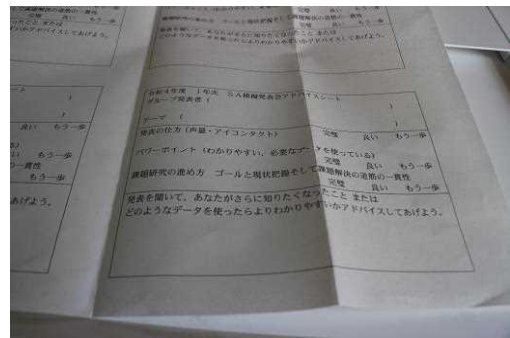 完璧 良い もう一歩
発表を聞いて、あなたがさらに知りたくなったこと または
どのようなデータを使ったらよりわかりやすいかアドバイスしてあげよう。
令和4年度 1年次 SA模擬発表会アドバイスシート
グループ発表者(
)
テーマ (
)
発表の仕方(声量・アイコンタクト) 完璧 良い もう一歩
パワーポイント(わかりやすい、必要なデータを使っている)
完璧 良い もう一歩
課題研究の進め方 ゴールと現状把握そして課題解決の道筋の一貫性
完璧 良い もう一歩
発表を聞いて、あなたがさらに知りたくなったこと または
どのようなデータを使ったらよりわかりやすいかアドバイスしてあげよう。